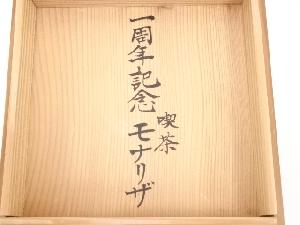 一周年記念
喫茶
モナリザ